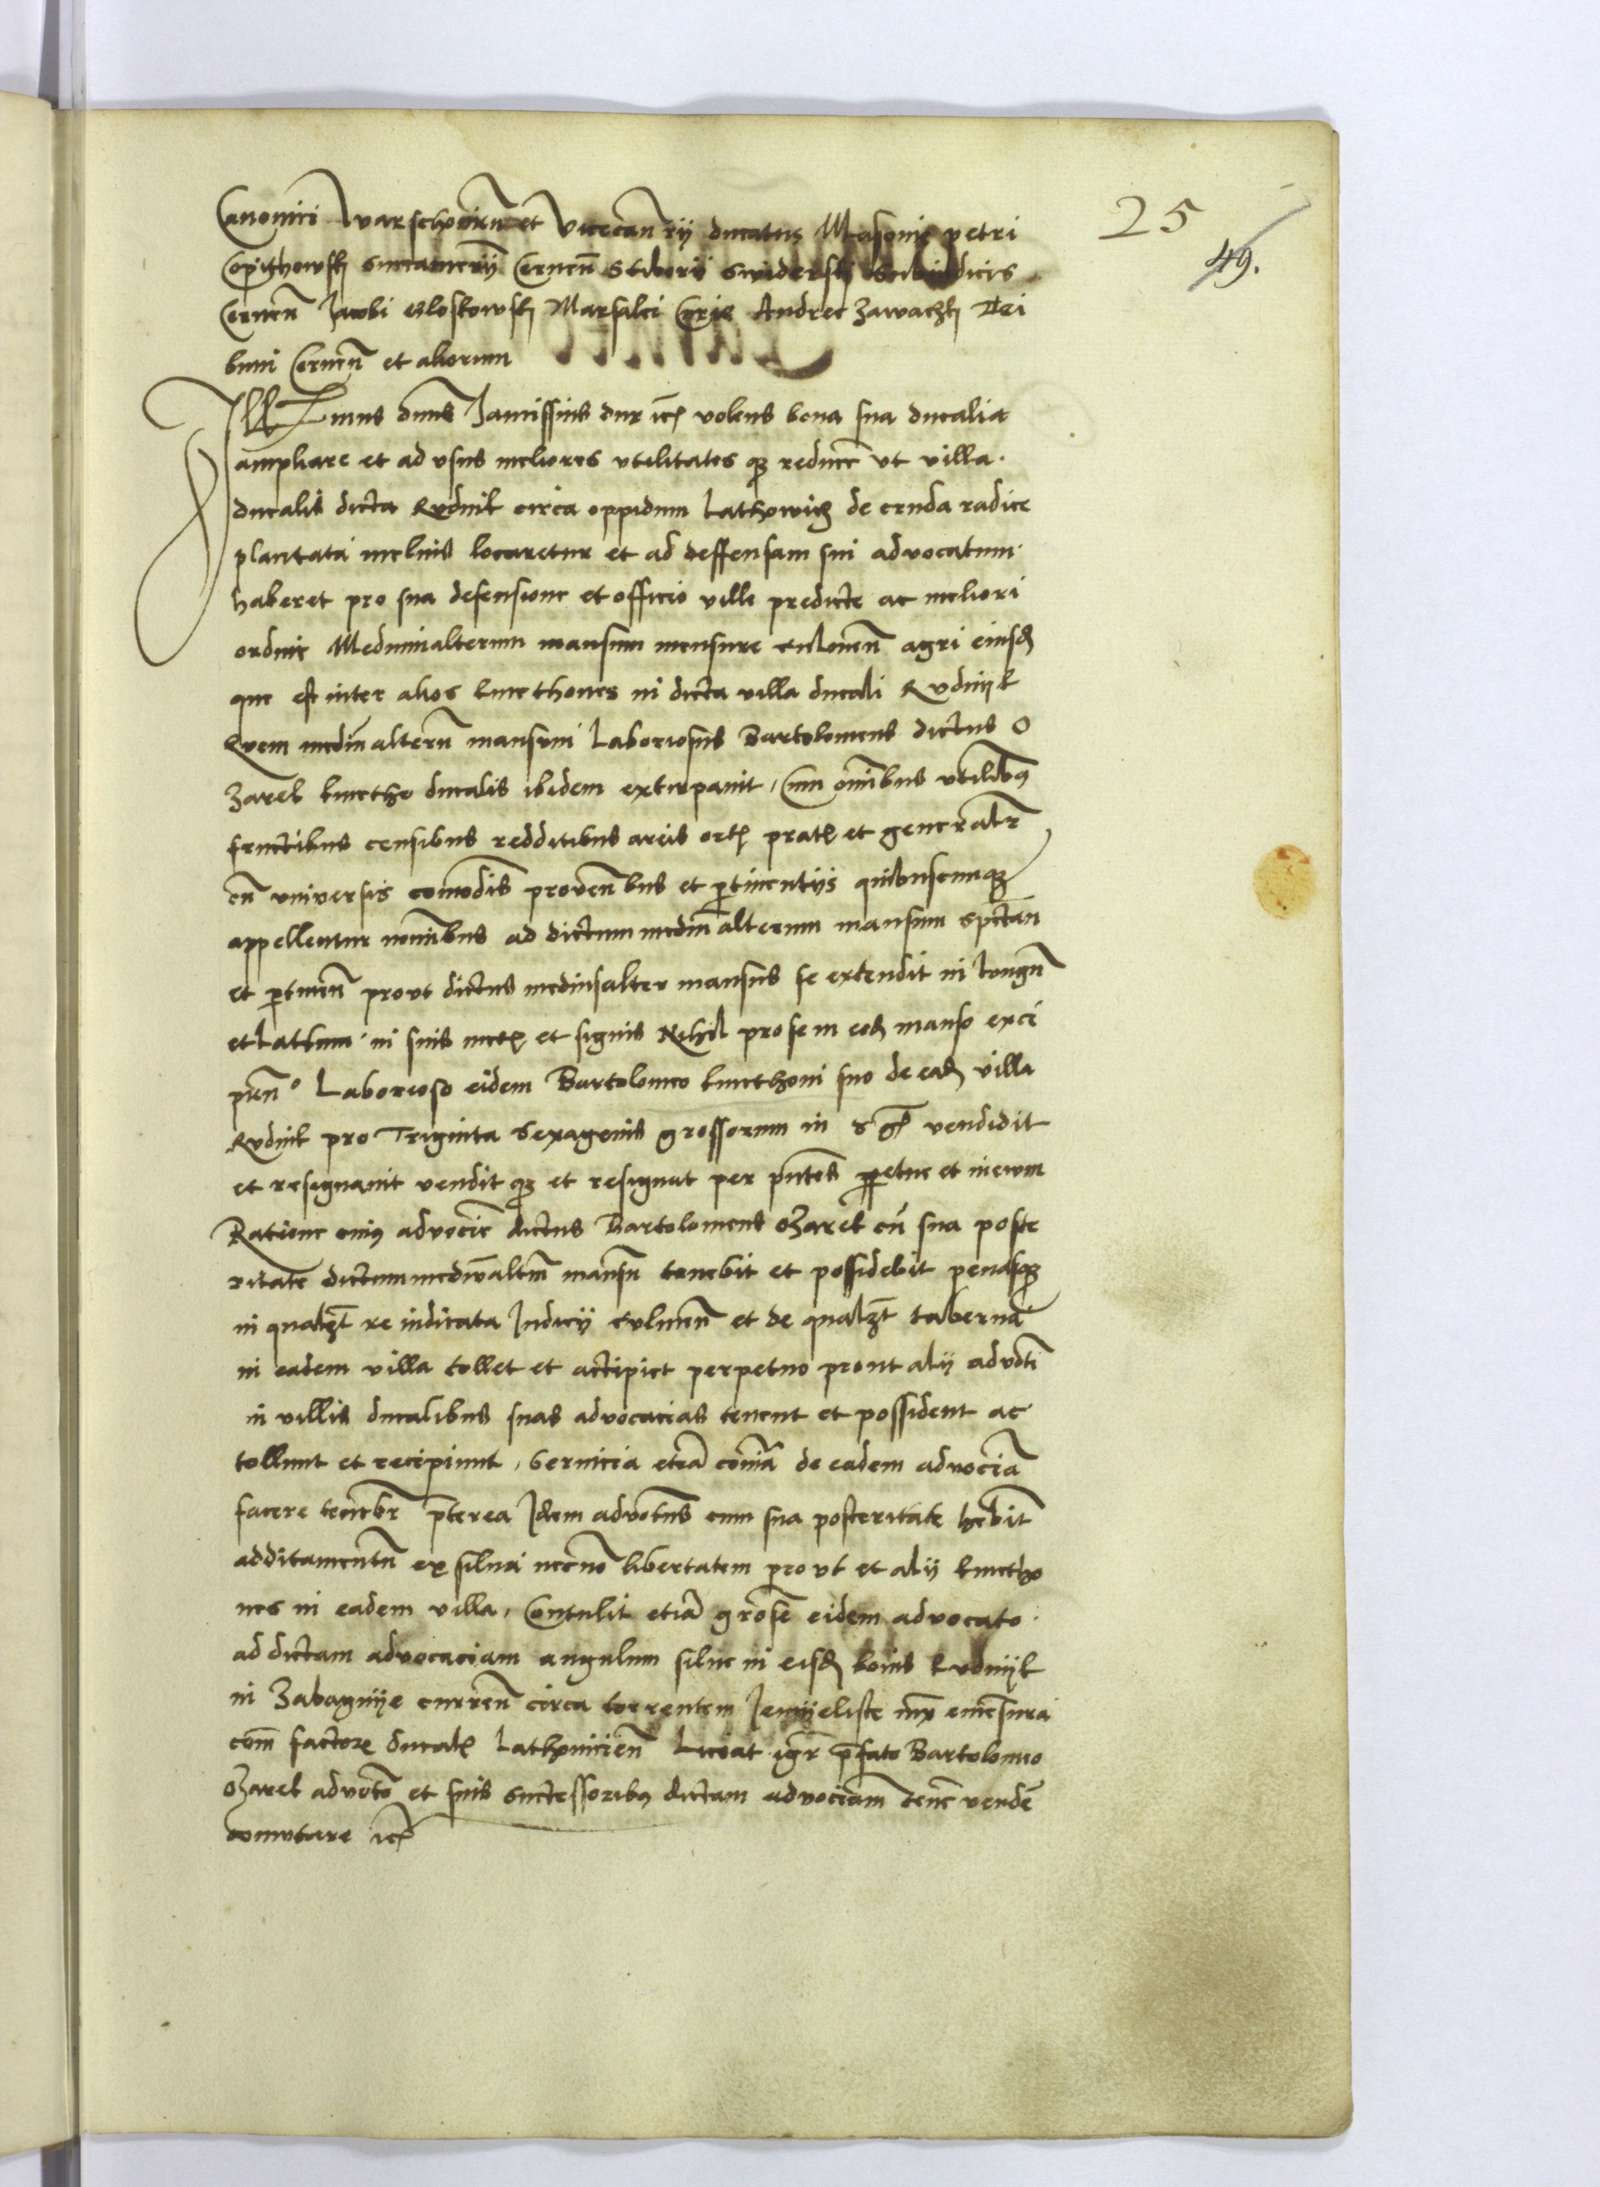 25
49.
Canonici Warschovień et Vicecancrij ducatus Masovie petri
Copithowskj succamerij Cernen Stiborij Swiderskj Subiudicis
Cernen Jacobi Marsalci Curie Andree Zawaczkj Tri
buni Cernen et aliorum
Illmus dnus Janussius dux etc volens bona sua ducalia
ampliare et ad vsus meliores vtilitates qz reducere vt villa
ducalis dicta Rudnik circa oppidum Lathowicz de cruda radice
plantata melius locaretur et ad deffensam sui advocatum
haberet pro sua defensione et officio ville predicte ac meliori
ordine Mediumalterum mansum mensure culmen agri eiusd
que est inter alios kmethones in dicta villa ducali Rudnyk
Quem mediualterum mansum Laboriosus Bartolomeus dictus O
zarek kmetho ducalis ibidem extirpavit, Cum omnibus vtilibus
fructibus censibus redditibus areis ort prat et generalr
cum vniversis comodis provenbus et pertinentijs quibuscumqz
appellentur nominbus ad dictum mediualterum mansum spectan
et pertinen prout dictus mediusalter mansus se extendit in longum
et Lattum in suis met et signis Nihil pro se in eod manso exci
pien Laborioso eidem Bartolomeo kmethoni suo de ead villa
Rudnik pro Triginta sexagenis grossorum in vendidit
et resignavit vendit qz et resignat per pntes perpetue et inewm
Ratione cuius advocie dictus Bartolomeus Ozarek cum sua poste
ritate dictum mediualtm mansum tenebit et possidebit penasqz
in qualzt re iudicata Judicij culmen et de qualzt taberna
in eadem villa tollet et accipiet perpetuo prout alij advoti
in villis ducalibus suas advocacias tenent et possident ac
tollunt et recipiunt, Servicia etiam comia de eadem advocia
facere tenebr preterea Idem advotus cum sua posteritate hebit
additamentum ex silua necno libertatem prout et alij kmetho
nes in eadem villa, Contulit etiam grose eidem advocato
ad dictam advocaciam angulum silue in eisd bonis Rudnyk
in Zabagnye curren circa torrentem
com factore ducal Lathovicien Liceat igr prefato Bartolomeo
Ozarek advoto et suis successoribus dictam advociam tene vende
comutare etc